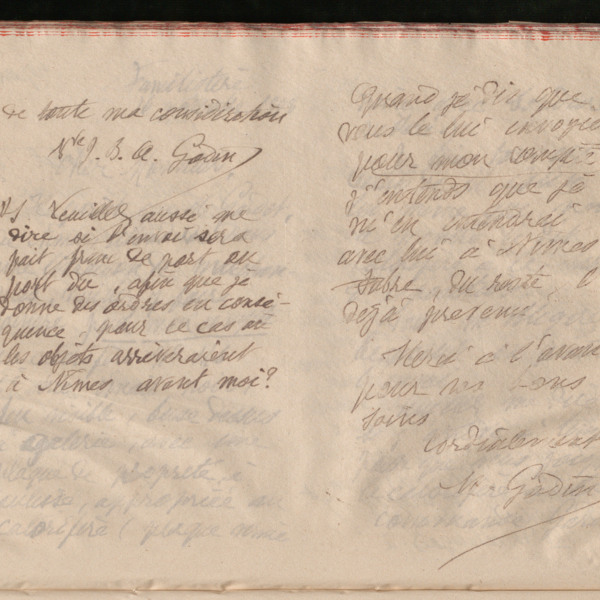 de toute ma considération
Vve J. B. A. Godin
P.S. Veuillez aussi me
dire si l'envoi sera
fait franc de port ou
port dû, afin que je
donne des ordres en consé-
quence, pour le cas où
les objets arriveraient
à Nîmes avant moi?
Quand je dis que
vous le lui envoyez
pour mon compte
j'entends que je
m'en entendrai
avec lui à Nîmes
Fabre, du reste,
déjà prévenu
Merci à l'avance
pour vos bons
soins
cordialement
Vve Godin